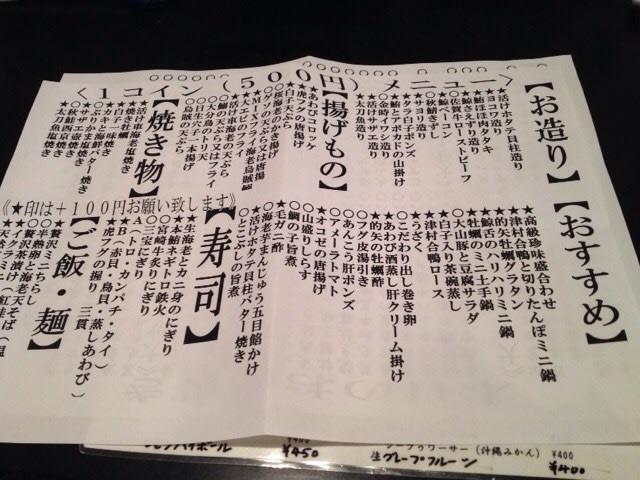 <1コイン(500円)メニュー>
【お造り】
★活けホタテ貝柱造り
★ヨコワ造り
★鮪ほほ肉タタキ
★鯨さえずり造り
○佐賀牛ローストビーフ
★鯨ベーコン
○秋鯖きずし
★タラ白子ポンズ
○鮪とアボカドの山掛け
○金時イワシ造り
★活けサザエ造り
★太刀魚造り
【揚げもの】
★あわびコロッケ
★虎フグの唐揚げ
★白子天ぷら
○桜海老のかき揚げ
○ゲソの天ぷら又は唐揚
★MIXフライ
★大エビのフライ
★活け車海老の天ぷら
○鰯の天ぷら又はフライ
○大分鳥のトリ天
【焼き物】
★活け車海老塩焼き
★焼き牡蠣
★白子
★カキと海鮮バター焼き
★ぶりかま塩焼き
★サザエ壺焼き
★秋鮭西京焼き
★太刀魚塩焼き
《★印は+100円お願い致します》
【おすすめ】
★高級珍味盛合わせ
★津村合鴨と切りたんぽミニ鍋
★的矢牡蠣グラタン
★鯨のハリハリミニ鍋
★牡蠣のミニ土手鍋
○大山豚と豆腐サラダ
★白子入り茶碗蒸し
★津村合鴨ロース
★うざく
○こだわり出し巻き卵
★あわび酒蒸し肝クリーム掛け
★的矢の牡蠣酢
○フグ皮湯引き
★あんこう肝ポンズ
★オコゼの唐揚げ
★アメーラトマト
○山盛りしらす
★鯛の子旨煮
★毛ガニ酢
○海老芋まんじゅう五目餡かけ
★活けホタテ貝柱バター焼き
○とこぶしの旨煮
【寿司】
★生海老とカニ身のにぎり
★本鮪ネギトロ鉄火
○宮崎牛炙りにぎり
○三宝にぎり
★A(トロ・カンパチ・タイ)
★B(赤貝・鳥貝・蒸しあわび)
★虎フグの握り 三貫
【ご飯・麺】
生グレープフルーツ
(沖縄みかん) ¥400
¥450
¥400